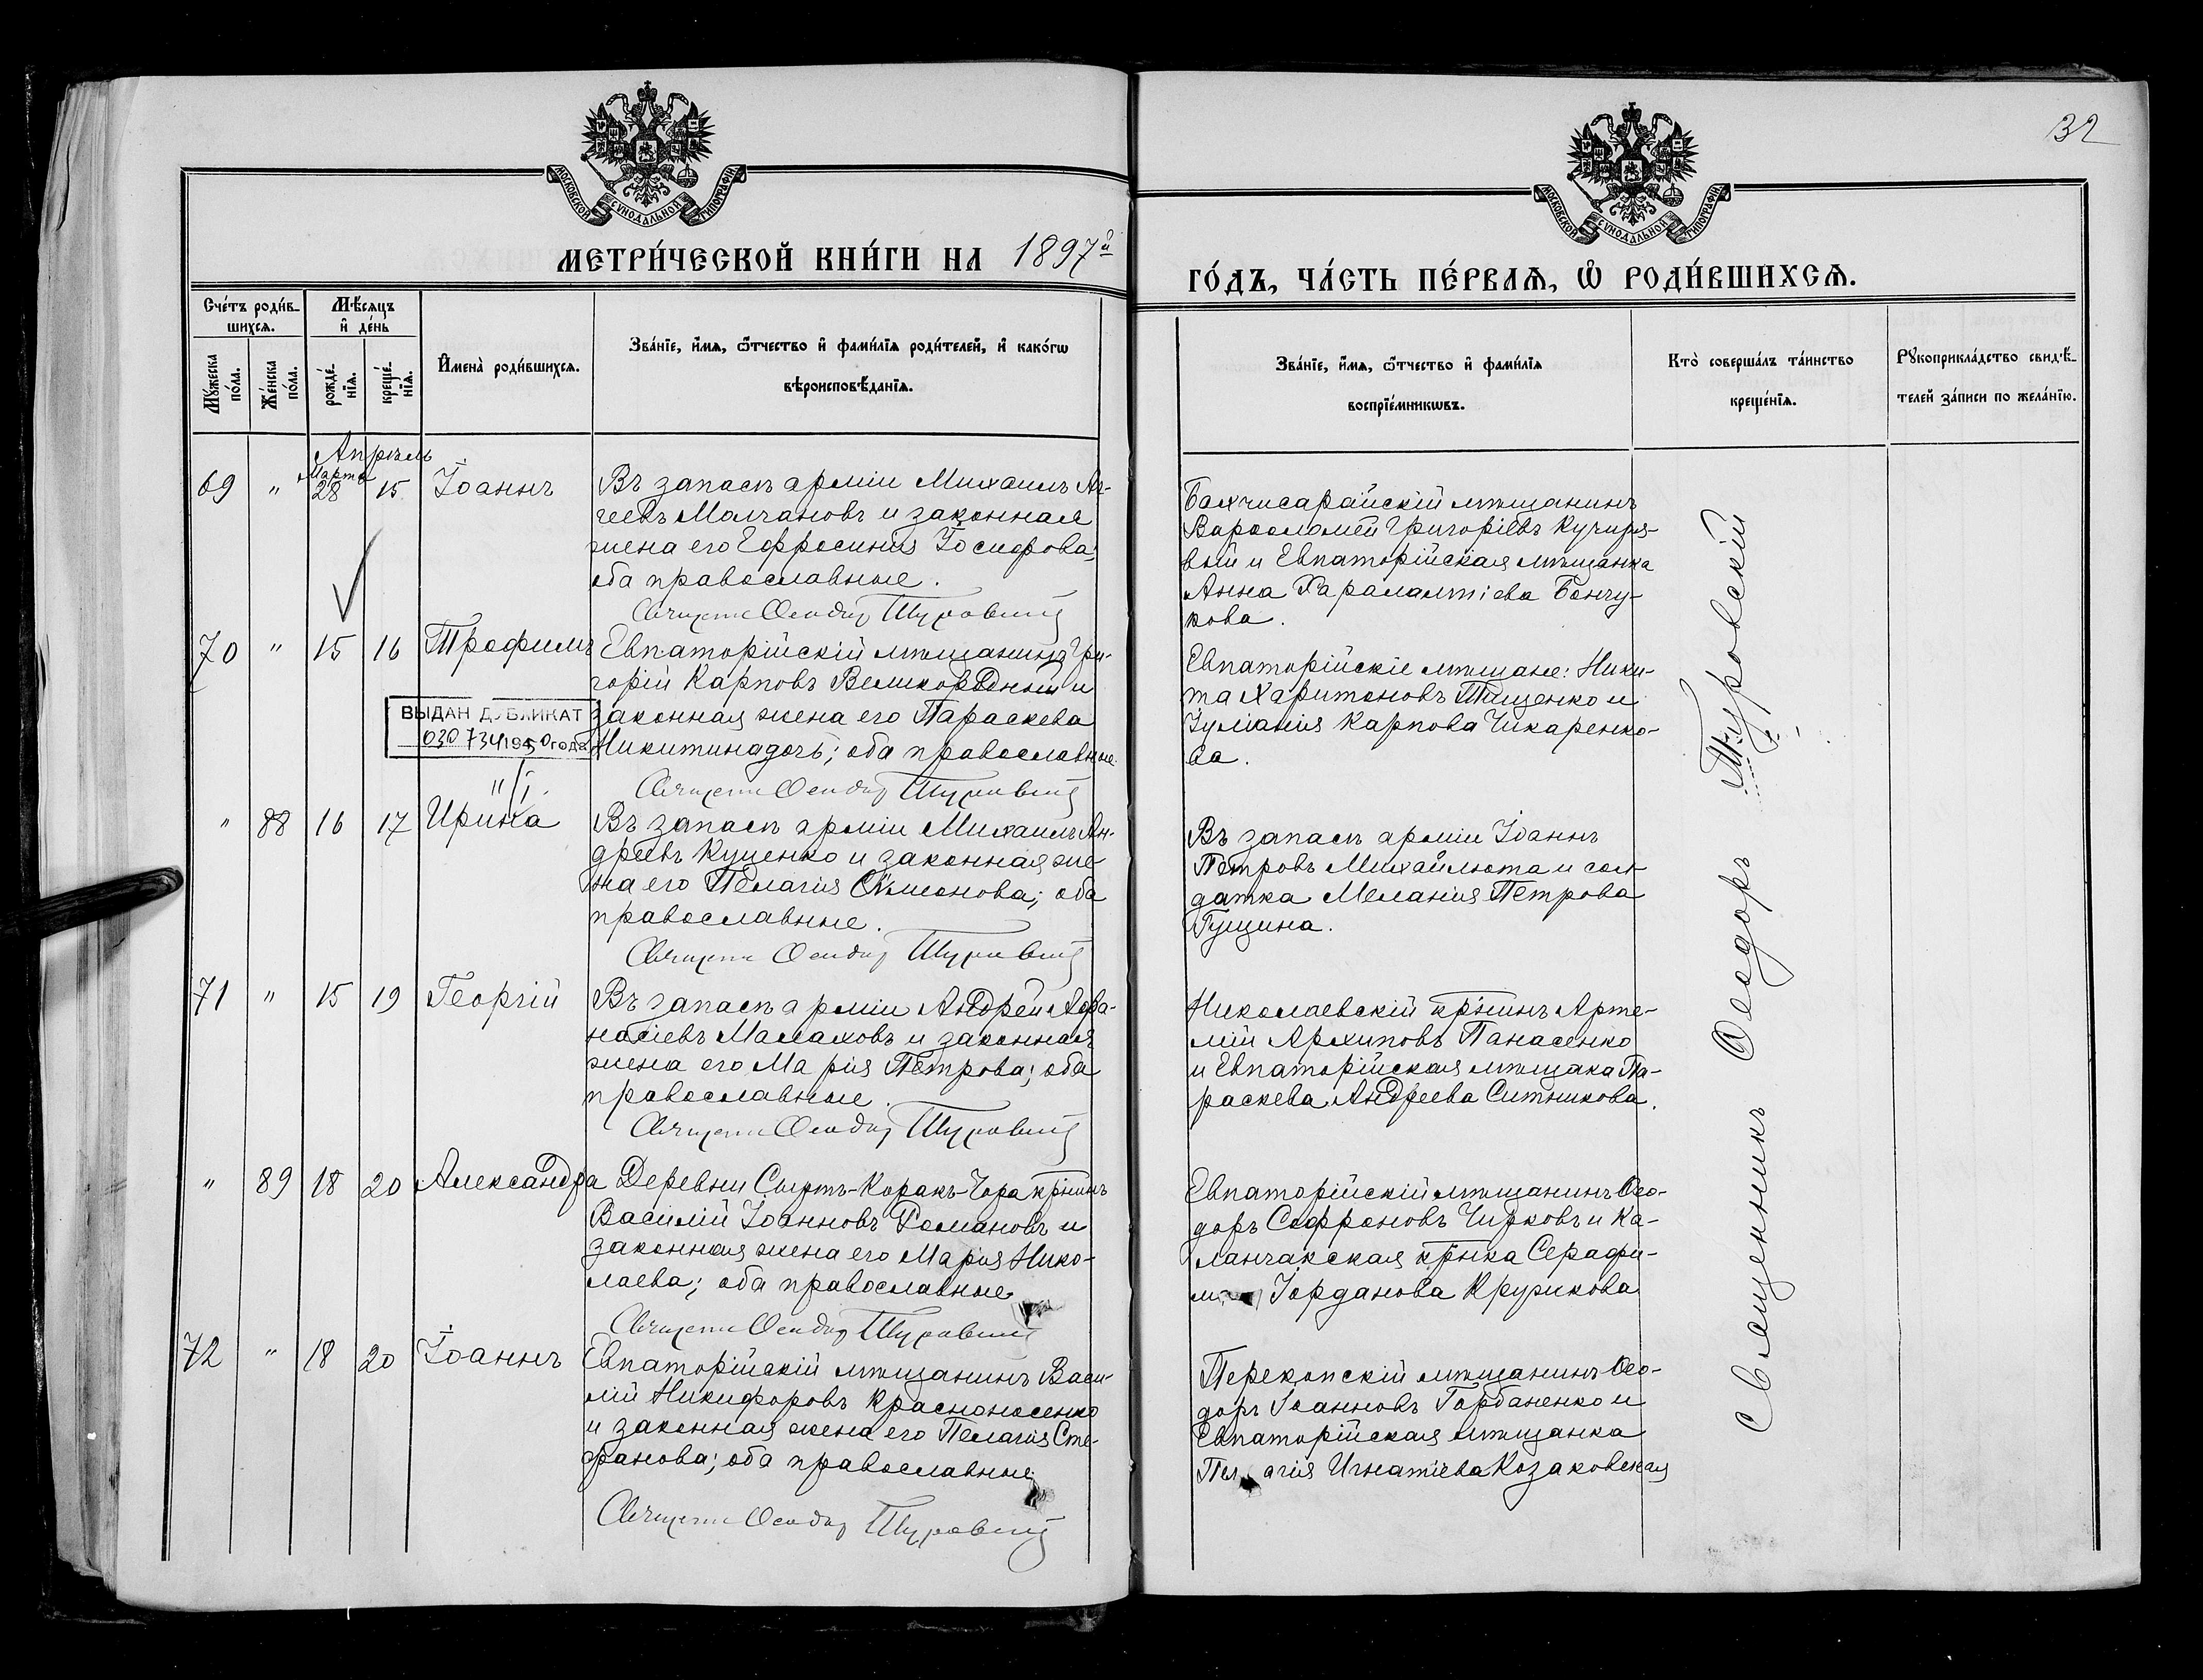 32
МОСКОВСКОЙ СѴНОДАЛЬНОЙ ТИПОГРАФІИ
МОСКОВСКОЙ СѴНОДАЛЬНОЙ ТИПОГРАФІИ
МЕТРИ́ЧЕСКОЙ КНИ́ГИ НА 1897й
ГО́ДЪ, ЧА́СТЬ ПЕ́РВАѦ, Ѡ҆ РОДИ́ВШИХСѦ.
Сче́тъ роди́в-
шихсѧ.
Мꙋ́жеска
по́ла.
Же́нска
по́ла.
Мѣ́сѧцъ
и҆ де́нь
рожде́-
нїѧ.
креще́-
нїѧ.
И҆мена̀ роди́вшихсѧ.
Зва́нїе, и҆́мѧ, ѻ҆́тчество и҆ фами́лїѧ роди́телей, и҆ како́гѡ
вѣроисповѣ́данїѧ.
Зва́нїе, и҆́мѧ, ѻ҆́тчество и҆ фами́лїѧ
воспрїе́мникѡвъ.
Кто̀ соверша́лъ та́инство
креще́нїѧ.
Рꙋкоприкла́дство свидѣ́-
телей за́писи по жела́нїю.
Апрѣль
69 " Марта 28 15 Іоаннъ
Въ запасѣ арміи Михаилъ Аг-
геевъ Молчановъ и законная
жена его Ефросинія Іосифова;
оба православные.
Священ Ѳеодор Туровскій
Бахчисарайскій мѣщанинъ
Варѳоломей Григоріевъ Кучеря-
вый и Евпаторійская мѣщанка
Анна Харалампіева Бончу-
кова.
70 " 15 16 Трофимъ
Евпаторійскій мѣщанинъ Гри-
горій Карповъ Великородный и
законная жена его Параскева
Никитина дочь; оба православные.
Священ Ѳеодор Туровскій
ВЫДАН ДУБЛИКАТ
030734 1950 года
Евпаторійскіе мѣщане: Ники-
та Харитоновъ Тищенко и
Іуліанія Карпова Чикаренко-
ва.
" 88 16 17 Ирина
Въ запасѣ арміи Михаилъ Ан-
дреевъ Куценко и законная же-
на его Пелагія Симонова; оба
православные.
Священ Ѳеодор Туровскій
Въ запасѣ арміи Іоаннъ
Петровъ Михайлюта и сол-
датка Меланія Петрова
Гущина.
71 " 15 19 Георгій
Въ запасѣ арміи Андрей Аѳа-
насіевъ Малаховъ и законная
жена его Марія Петрова; оба
православные.
Священ Ѳеодор Туровскій
Николаевскій кр̃нинъ Арте-
мій Архиповъ Панасенко
и Евпаторійская мѣщака Па-
раскева Андреева Ситникова.
" 89 18 20 Александра
Деревни Сыртъ-Каракъ-Чора кр̃нинъ
Василій Іоанновъ Романовъ и
законная жена его Марія Нико-
лаева; оба православные
Священ Ѳеодор Туровскій
Евпаторійскій мѣщанинъ Ѳео-
доръ Софроновъ Чирковъ и Ка-
ланчакская кр̃нка Серафи-
м Іорданова Крупикова
72 " 18 20 Іоаннъ
Евпаторійскій мѣщанинъ Васи-
лій Никифоровъ Красноносенко
и законная жена его Пелагія Сте-
фанова; оба православные
Священ Ѳеодор Туровскій
Перекопскій мѣщанинъ Ѳео-
доръ Іоанновъ Горбаненко и
Евпаторійская мѣщанка
Пелагія Игнатіева Козаковская
Священникъ Ѳеодоръ Туровскій